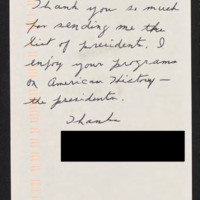 Thank you so much
for sending me the
list of president. I
enjoy your programs
on American History—
the presidents.
Thanks